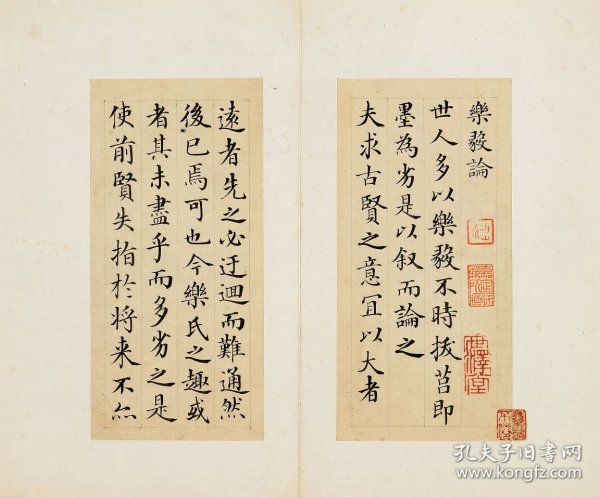 樂毅論
世人多以樂毅不時拔莒即
墨為劣是以叙而論之
夫求古賢之意宜以大者
遠者先之必迂迴而難通然
後已焉可也今樂氏之趣或
者其未盡乎而多劣之是
使前賢失指於將来不亦
世澤堂
孔夫子旧书网
www.kongfz.com